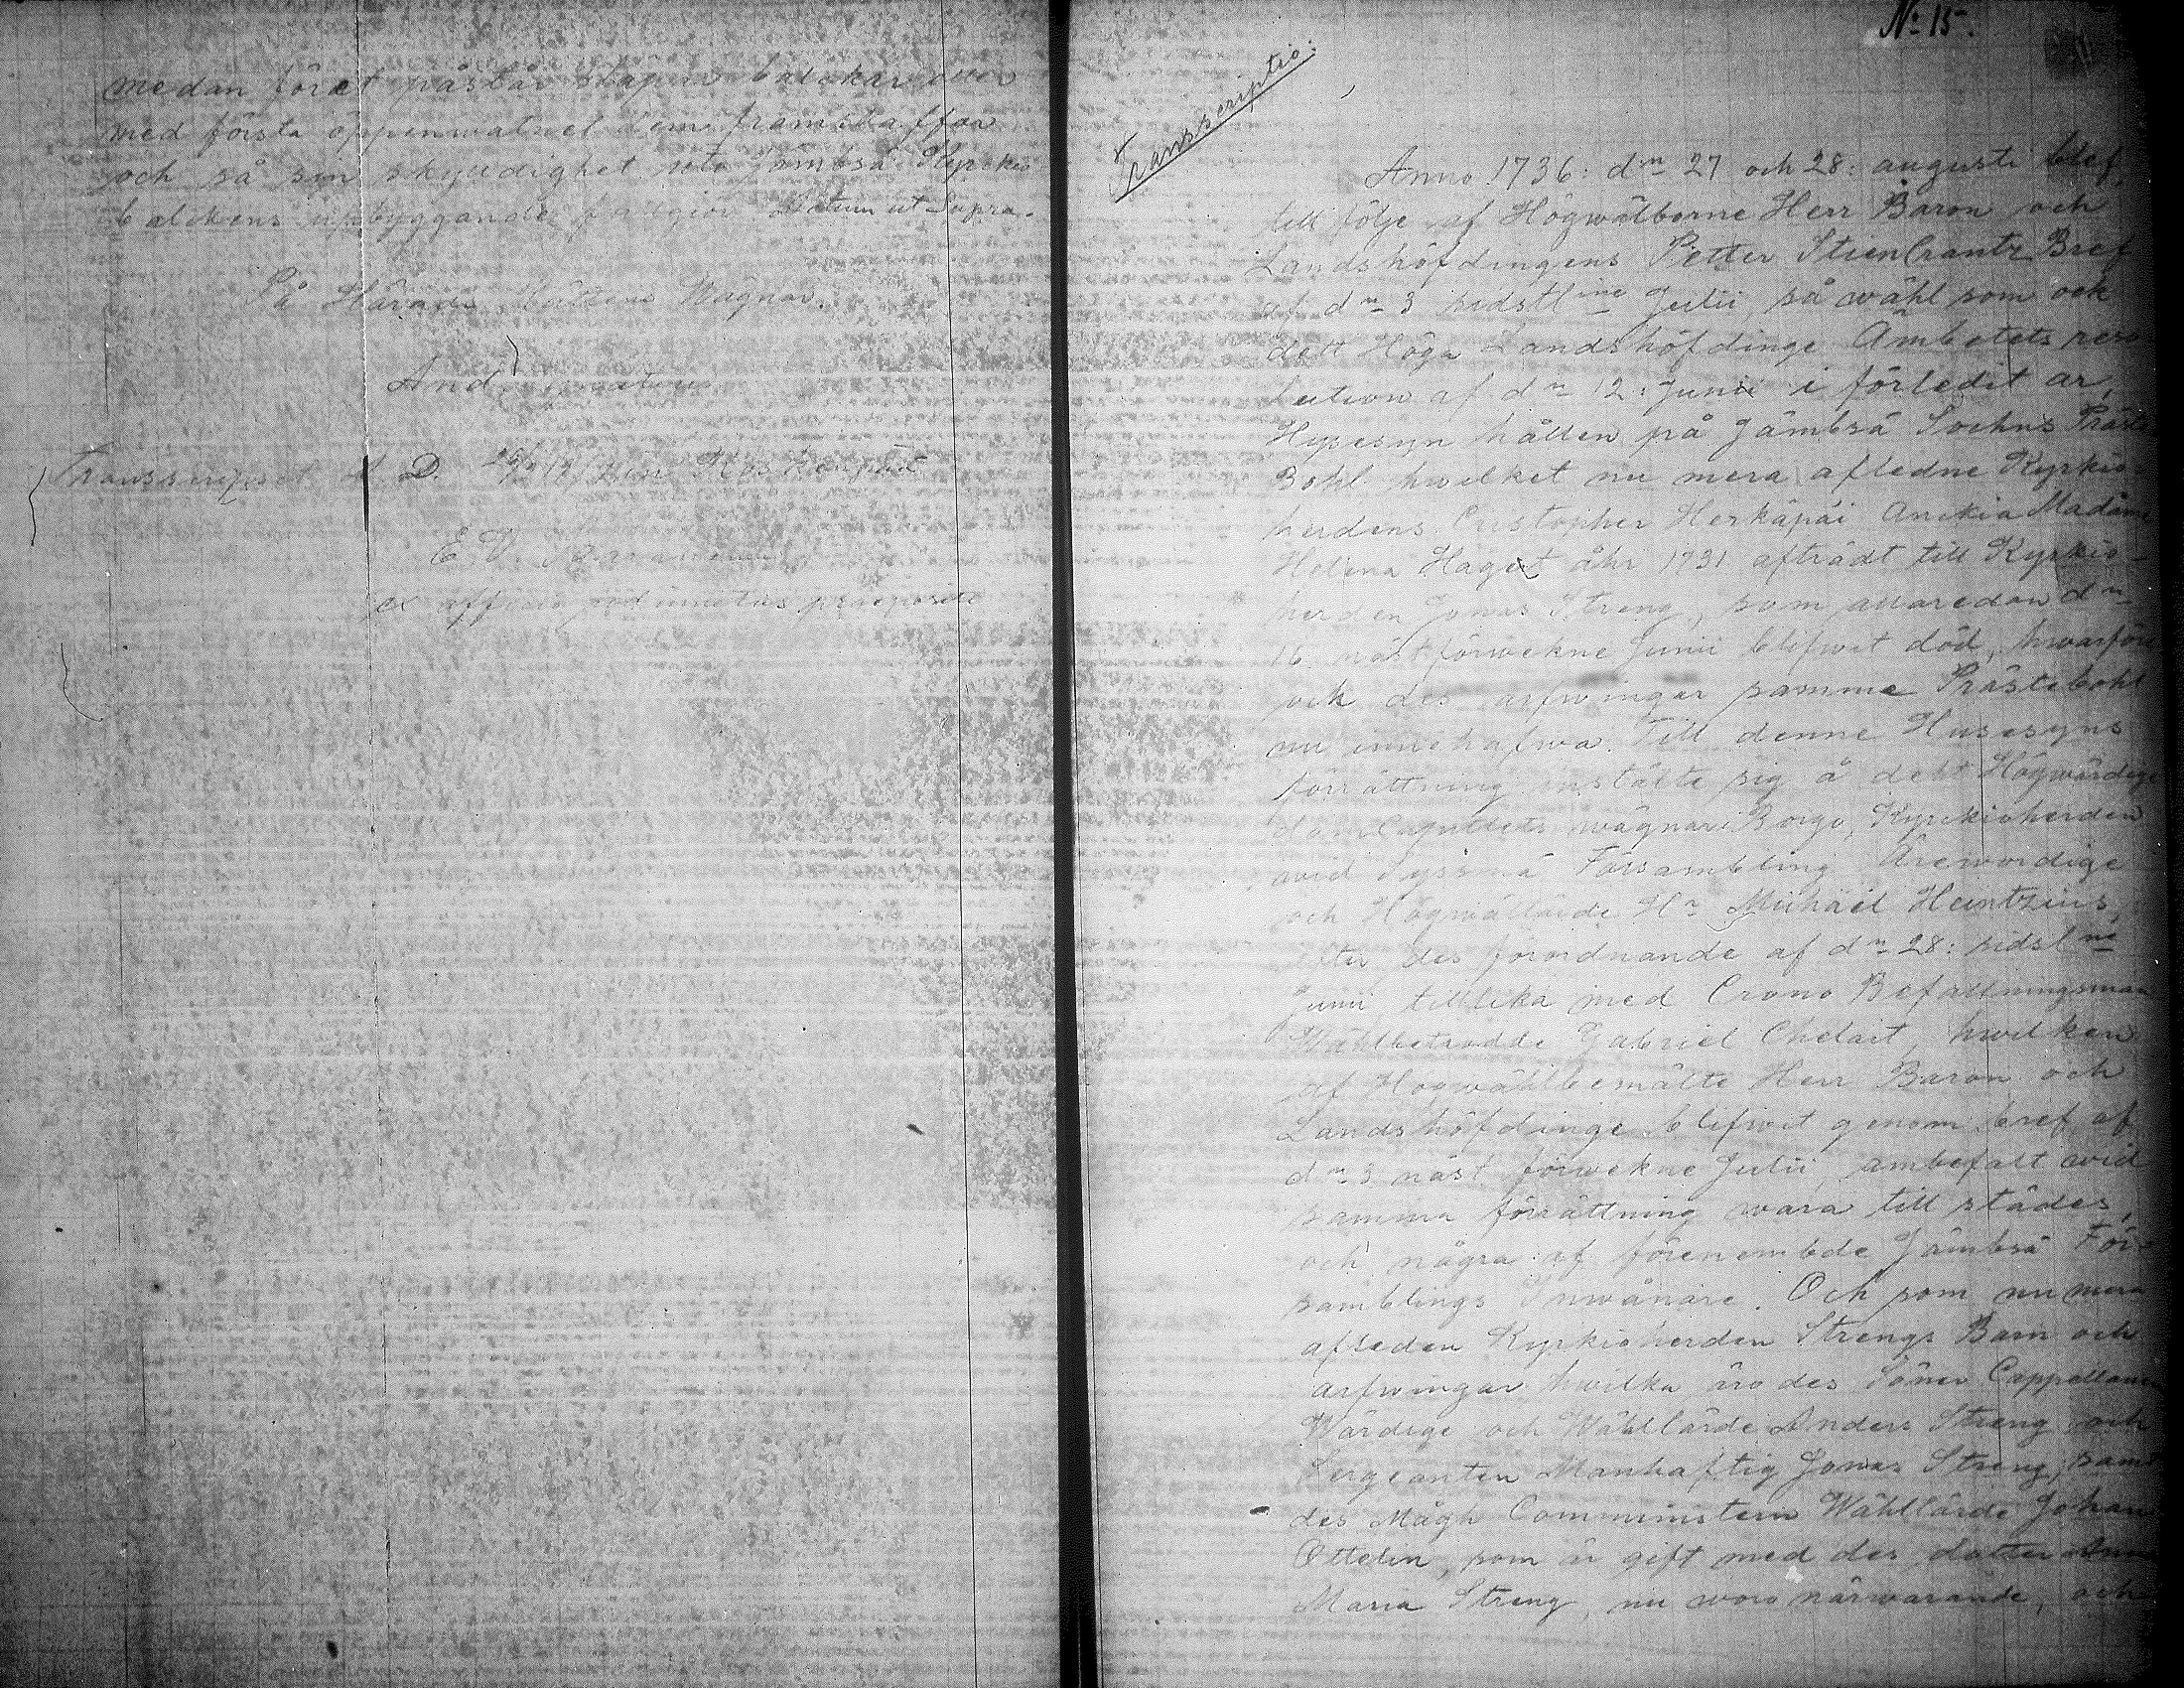 medan föret påstår skapa balckar
med första öppenwatnet dem framskaffar
och så sin skyldighet wid Jämbsä Kyrckio
balckens upbyggande fullgiör. Datum ut Supra.
På Härads Rättens Wägnar.
And.
Transscripset A. D. in Koskenpää
E. V.
ex officio
No 15.
Transscriptio:
Anno 1736: dn 27 och 28: augusti blef,
till följe af Högwälborne Herr Baron och
Landshöfdingens Petter StienCrantz Bref
af dn 3 sidstlne Julii så wähl som ock
dett Höga Landshöfdinge Ämbetets reso
lution af dn 12: Junii i förledit år,
Hysesyn hållen på Jämbsä Sochns Präste
Bohl hwilket nu mera afledne Kyrkio-
herdens Cristopher Herkäpäi Änckia Madame
Helena Hagert åhr 1731 afträdt till Kyrkio-
herden Jonas Streng, som allaredan dn
16. nästförwekne Junii blifwit död, hwarföre
ock des arfwingar samma Prästebohl
nu innehafwa. Till denne Husesyns
förrättning instälte sig å dett Högwärdige
domCapitlets wägnar i Borgo, Kyrckioherden
wid Sysmä Försambling Ärewördige
och Högwällärde Hr Michäel Heintzius,
efter des förordnande af dn 28: sidstlne
Junii tillika med Crono Befallningsman
Wählbetrodde Gabriel Chelait, hwilken
af Högwählbemälte Herr Baron och
Landshöfdinge blifwit genom bref af
dn 3 näst förwekne Julii, ambefalt wid
samma förrättning wara till städes,
och några af förenembde Jämbsä För-
samblings Inwånare. Och som nu mera
afleden Kyrkioherden Strengs Barn och
arfwingar hwilka äro des Söner Cappellanen
Wärdige och Wähllärde Anders Streng och
Sergeanten Manhaftig Jonas Streng, samt
des Mågh Comministern Wähllärde Johan
Ottelin, som är gift med des dotter Anna
Maria Streng, nu woro närwarande, och